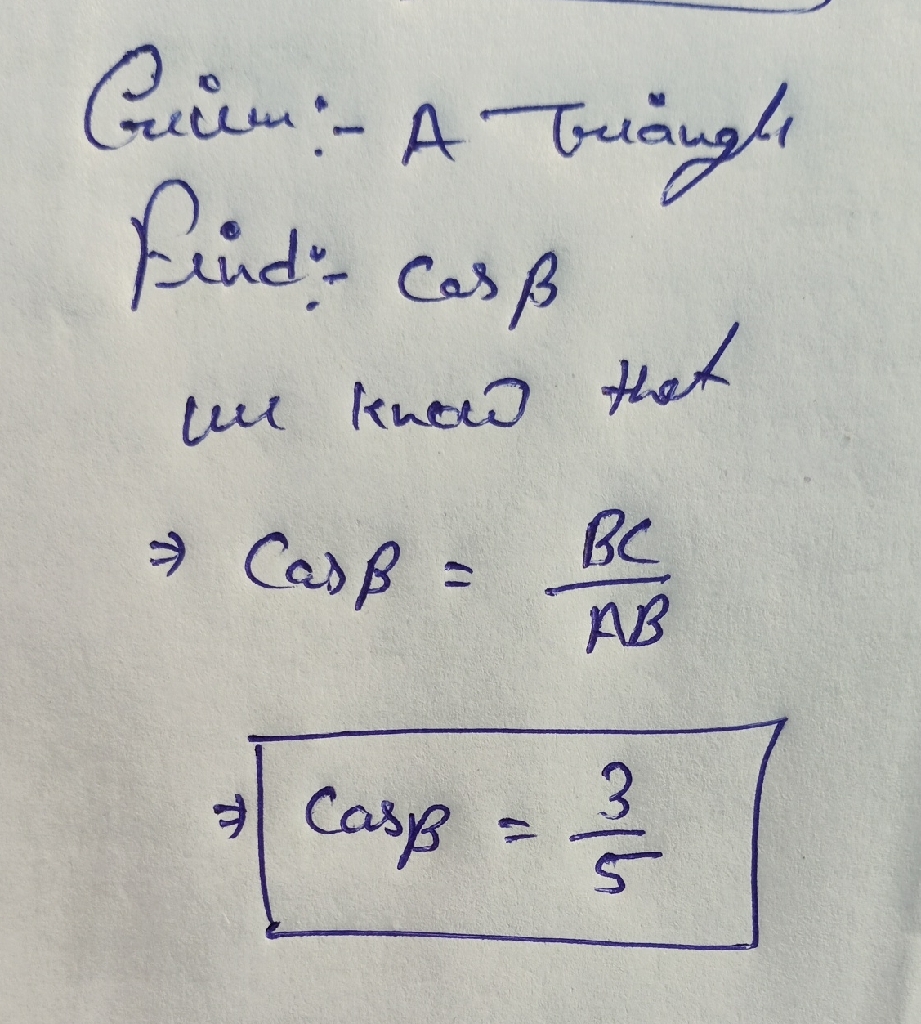 Given :- A Triangle
Find :- Cos β
we know that
⇒ Cos β = BC/AB
⇒ Cos β = 3/5